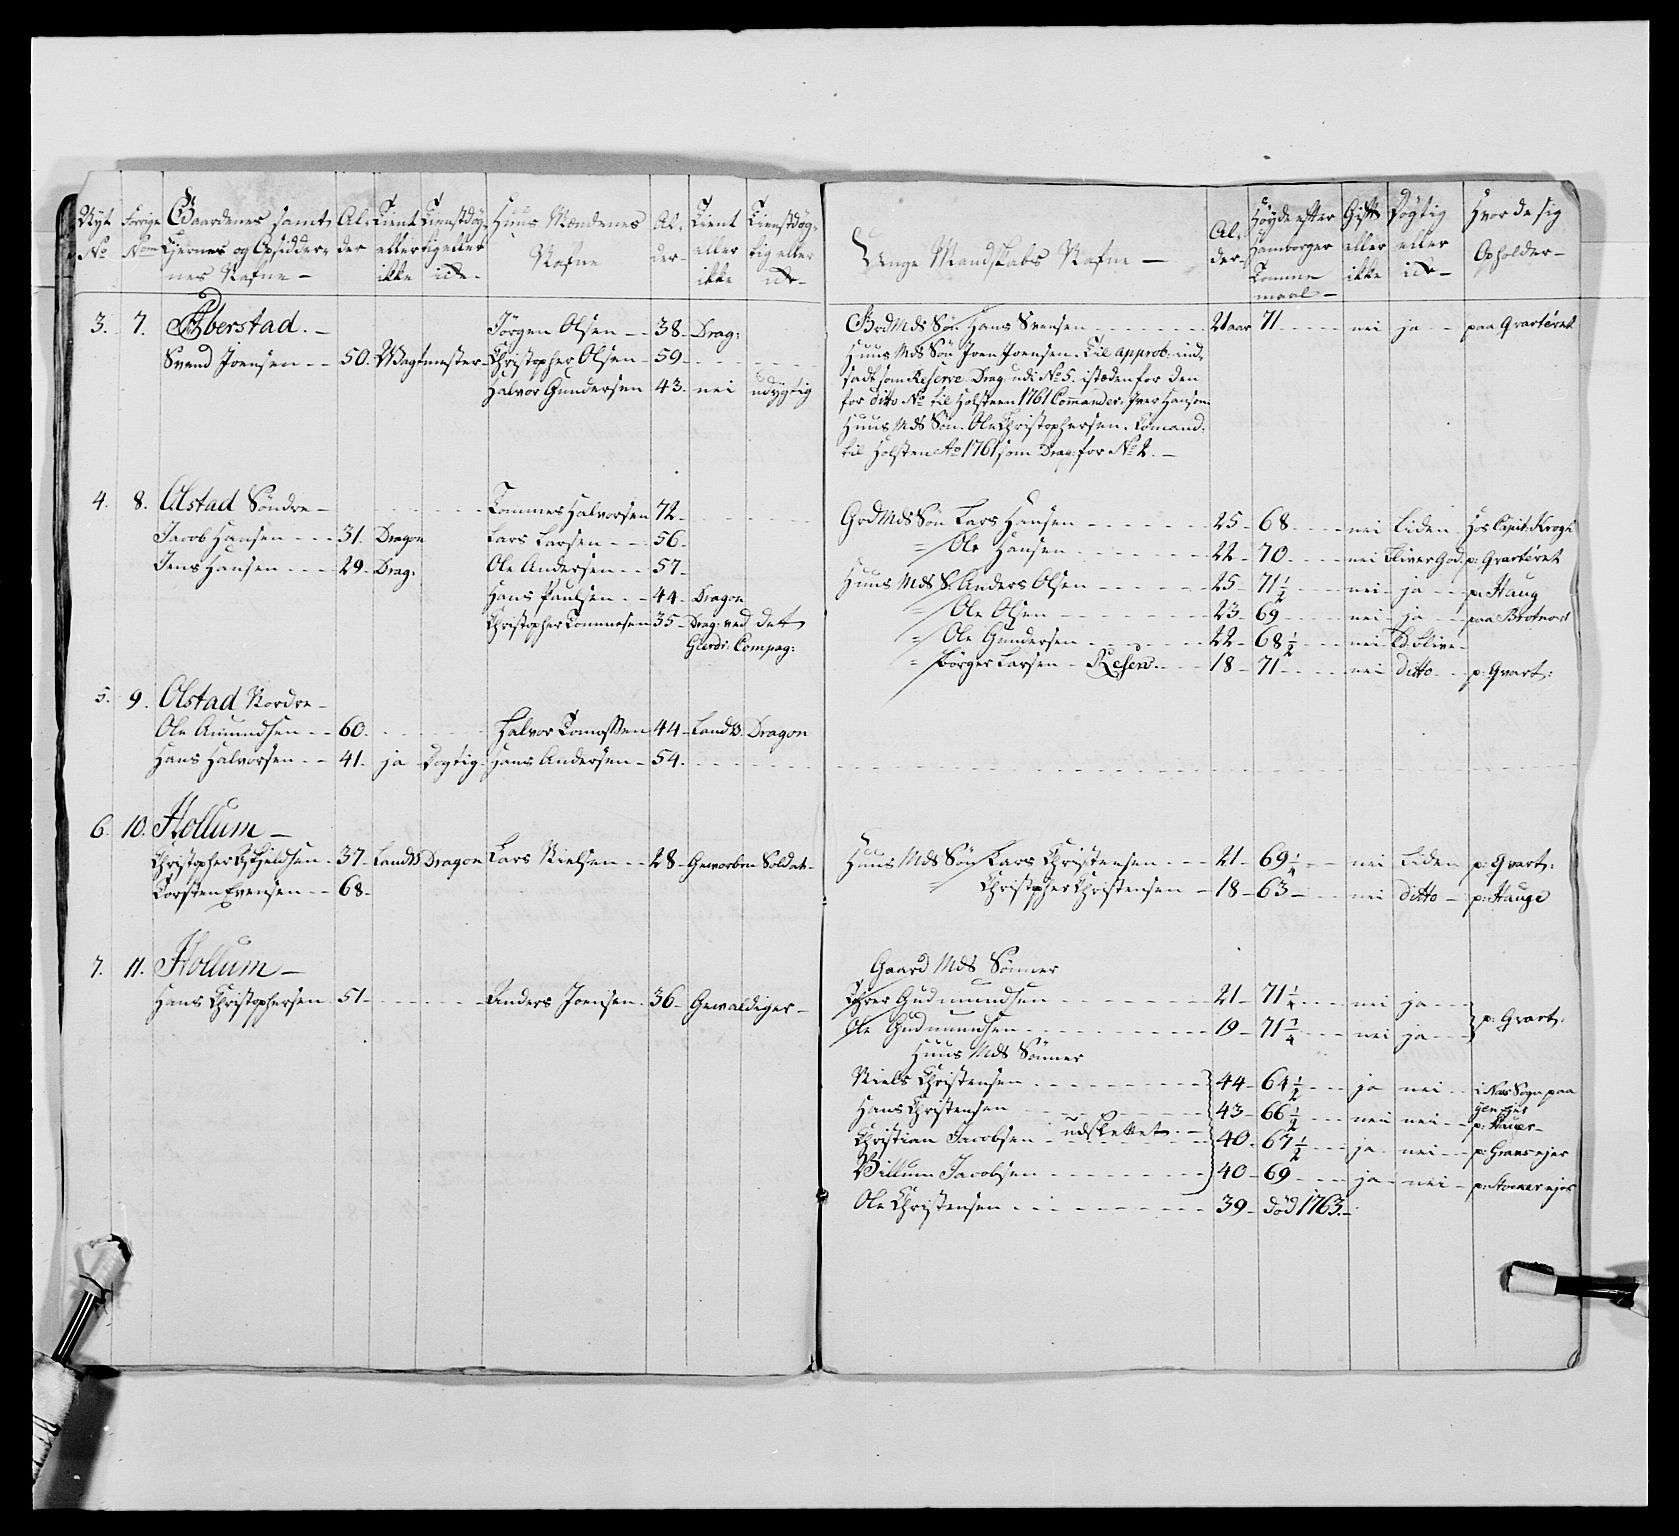 Nyt Forrige Gaardenes samt Al- Tient Tienstdyg- Huus Mændenes Al- Tient Tienstdyg-
No Nom Ejernes og Opsidder- der eller tig eller Nafne der eller tig eller
nes Nafne – ikke ick – ikke ick –
3. 7. Øberstad. – Jörgen Olsen – 38 – Drag:
Svend Joensen – – 50. Wagtmester – Christopher Olsen – 59 –
Halvor Gundersen 43. nei udygtig
4. 8. Olstad Söndre – Tommes Halvorsen 72 –
Jacob Hansen – – – 31. Dragon Lars Larsen – – – 56 –
Jens Hansen – – – 29 – Drag: Ole Andersen – – 57 –
Hans Paulsen – – 44 – Dragon
Christopher Tommesen 35 – Drag: ved det
Gierdr: Compag:
5. 9. Olstad Nordre –
Ole Amundsen – – 60. Halvor Tomessen 44 – Landts Dragon
Hans Halvorsen – – 41. ja Dygtig Hans Andersen – 54 –
6. 10. Hollum –
Christopher Eskjeldsen – 37 – Landts Dragon Lars Nielsen – – 28 – Geworben Soldat –
Torsten Evensen – – 68 –
7. 11. Hollum –
Hans Christophersen 51 – Anders Joensen – 36 – Gewaldiger –
Unge Mandskabs Nafne – Al- der – Höyde efter Hamborger Tomme maal – Gift eller ikke Dygtig eller ick – Hvor de sig Opholder –
GrdMds Sön Hans Svensen – – – – 21 aar 71 – – – nei ja – – paa Qvarteret
Huus Mds Sön Joen Joensen. Til approb: ind
sadt som Reserve Drag: udi No 5. istæden for den
for ditto No til Holsteen 1761 Commander: Iver Hansen
Huus Mds Sön. Ole Christophersen. Comand:
til Holsten Ao 1761 som Drag: for No 2. –
GrdMds Sön Lars Hansen – – – – 25 – 68 – – – nei Liden Hos Capit: Krogh
= Ole Hansen – – – – 22 – 70 – – – nei Bliver God. p: Qvarteret
Huus Mds S: Anders Olsen – – – – 25 – 71 1/2 – – nei – ja – – p: Haug
= Ole Olsen – – – – 23 – 69 – – – nei – ja – – paa
= Ole Gundersen – – – – 22 – 68 1/2 – – nei
= Börger Larsen – Reserv – – – 18 – 71 – – – nei ditto – – p: Qvart:
Huus Mds Sön Lars Christensen – – – 21 – 69 1/4 – – nei Liden p: Qvart:
= Christopher Christensen – 18 – 63 – – – nei ditto – p: Hauge
Gaard Mds Sönner
Gudmundsen – – – – 21 – 71 1/4 – – nei ja – –
Ole Gudmundsen – – – – 19 – 71 1/4 – – nei ja – – } p: Qvart:
Huus Mds Sönner
Niels Christensen – – – – 44 – 64 1/2 – – ja – nei – – i Næs Sogn paa
Hans Christensen – – – – 43 – 66 1/2 – – nei nei – –
Christian Jacobsen – udslettet – – 40 – 67 1/2 – – ja – nei – –
Villum Jacobsen – – – – 40 – 69 – – – ja – nei –
Ole Christensen – – – – 39 – död 1763. –